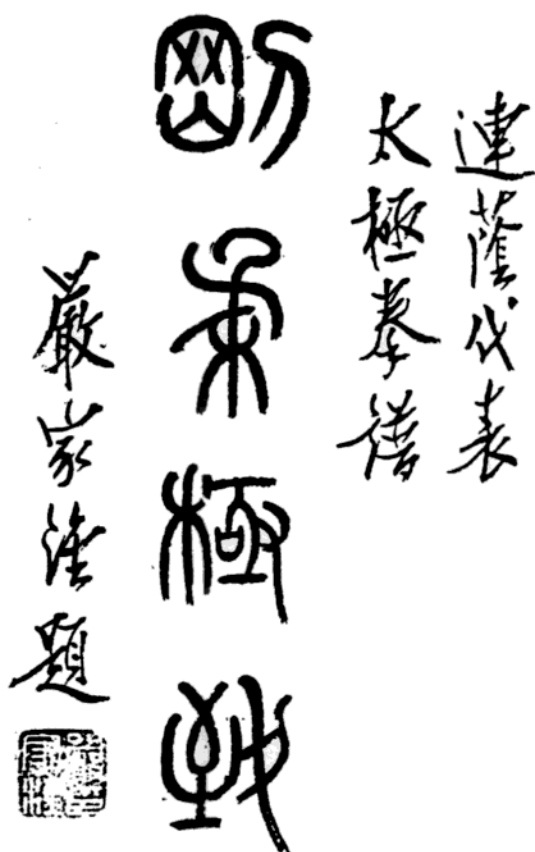 連蔭代表
太極拳譜
剛柔極致
嚴家淦題